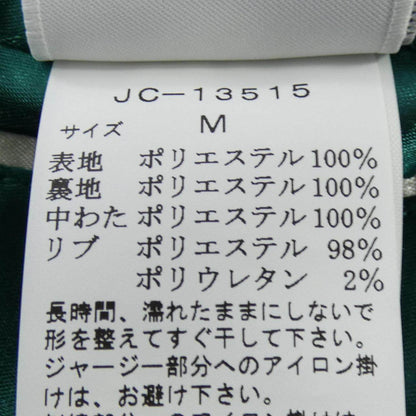 JC-13515
サイズ M
表地 ポリエステル 100%
裏地 ポリエステル 100%
中わた ポリエステル 100%
リブ ポリエステル 98%
ポリウレタン 2%
長時間、濡れたままにしないで
形を整えてすぐ干して下さい。
ジャージー部分へのアイロン掛
けは、お避け下さい。